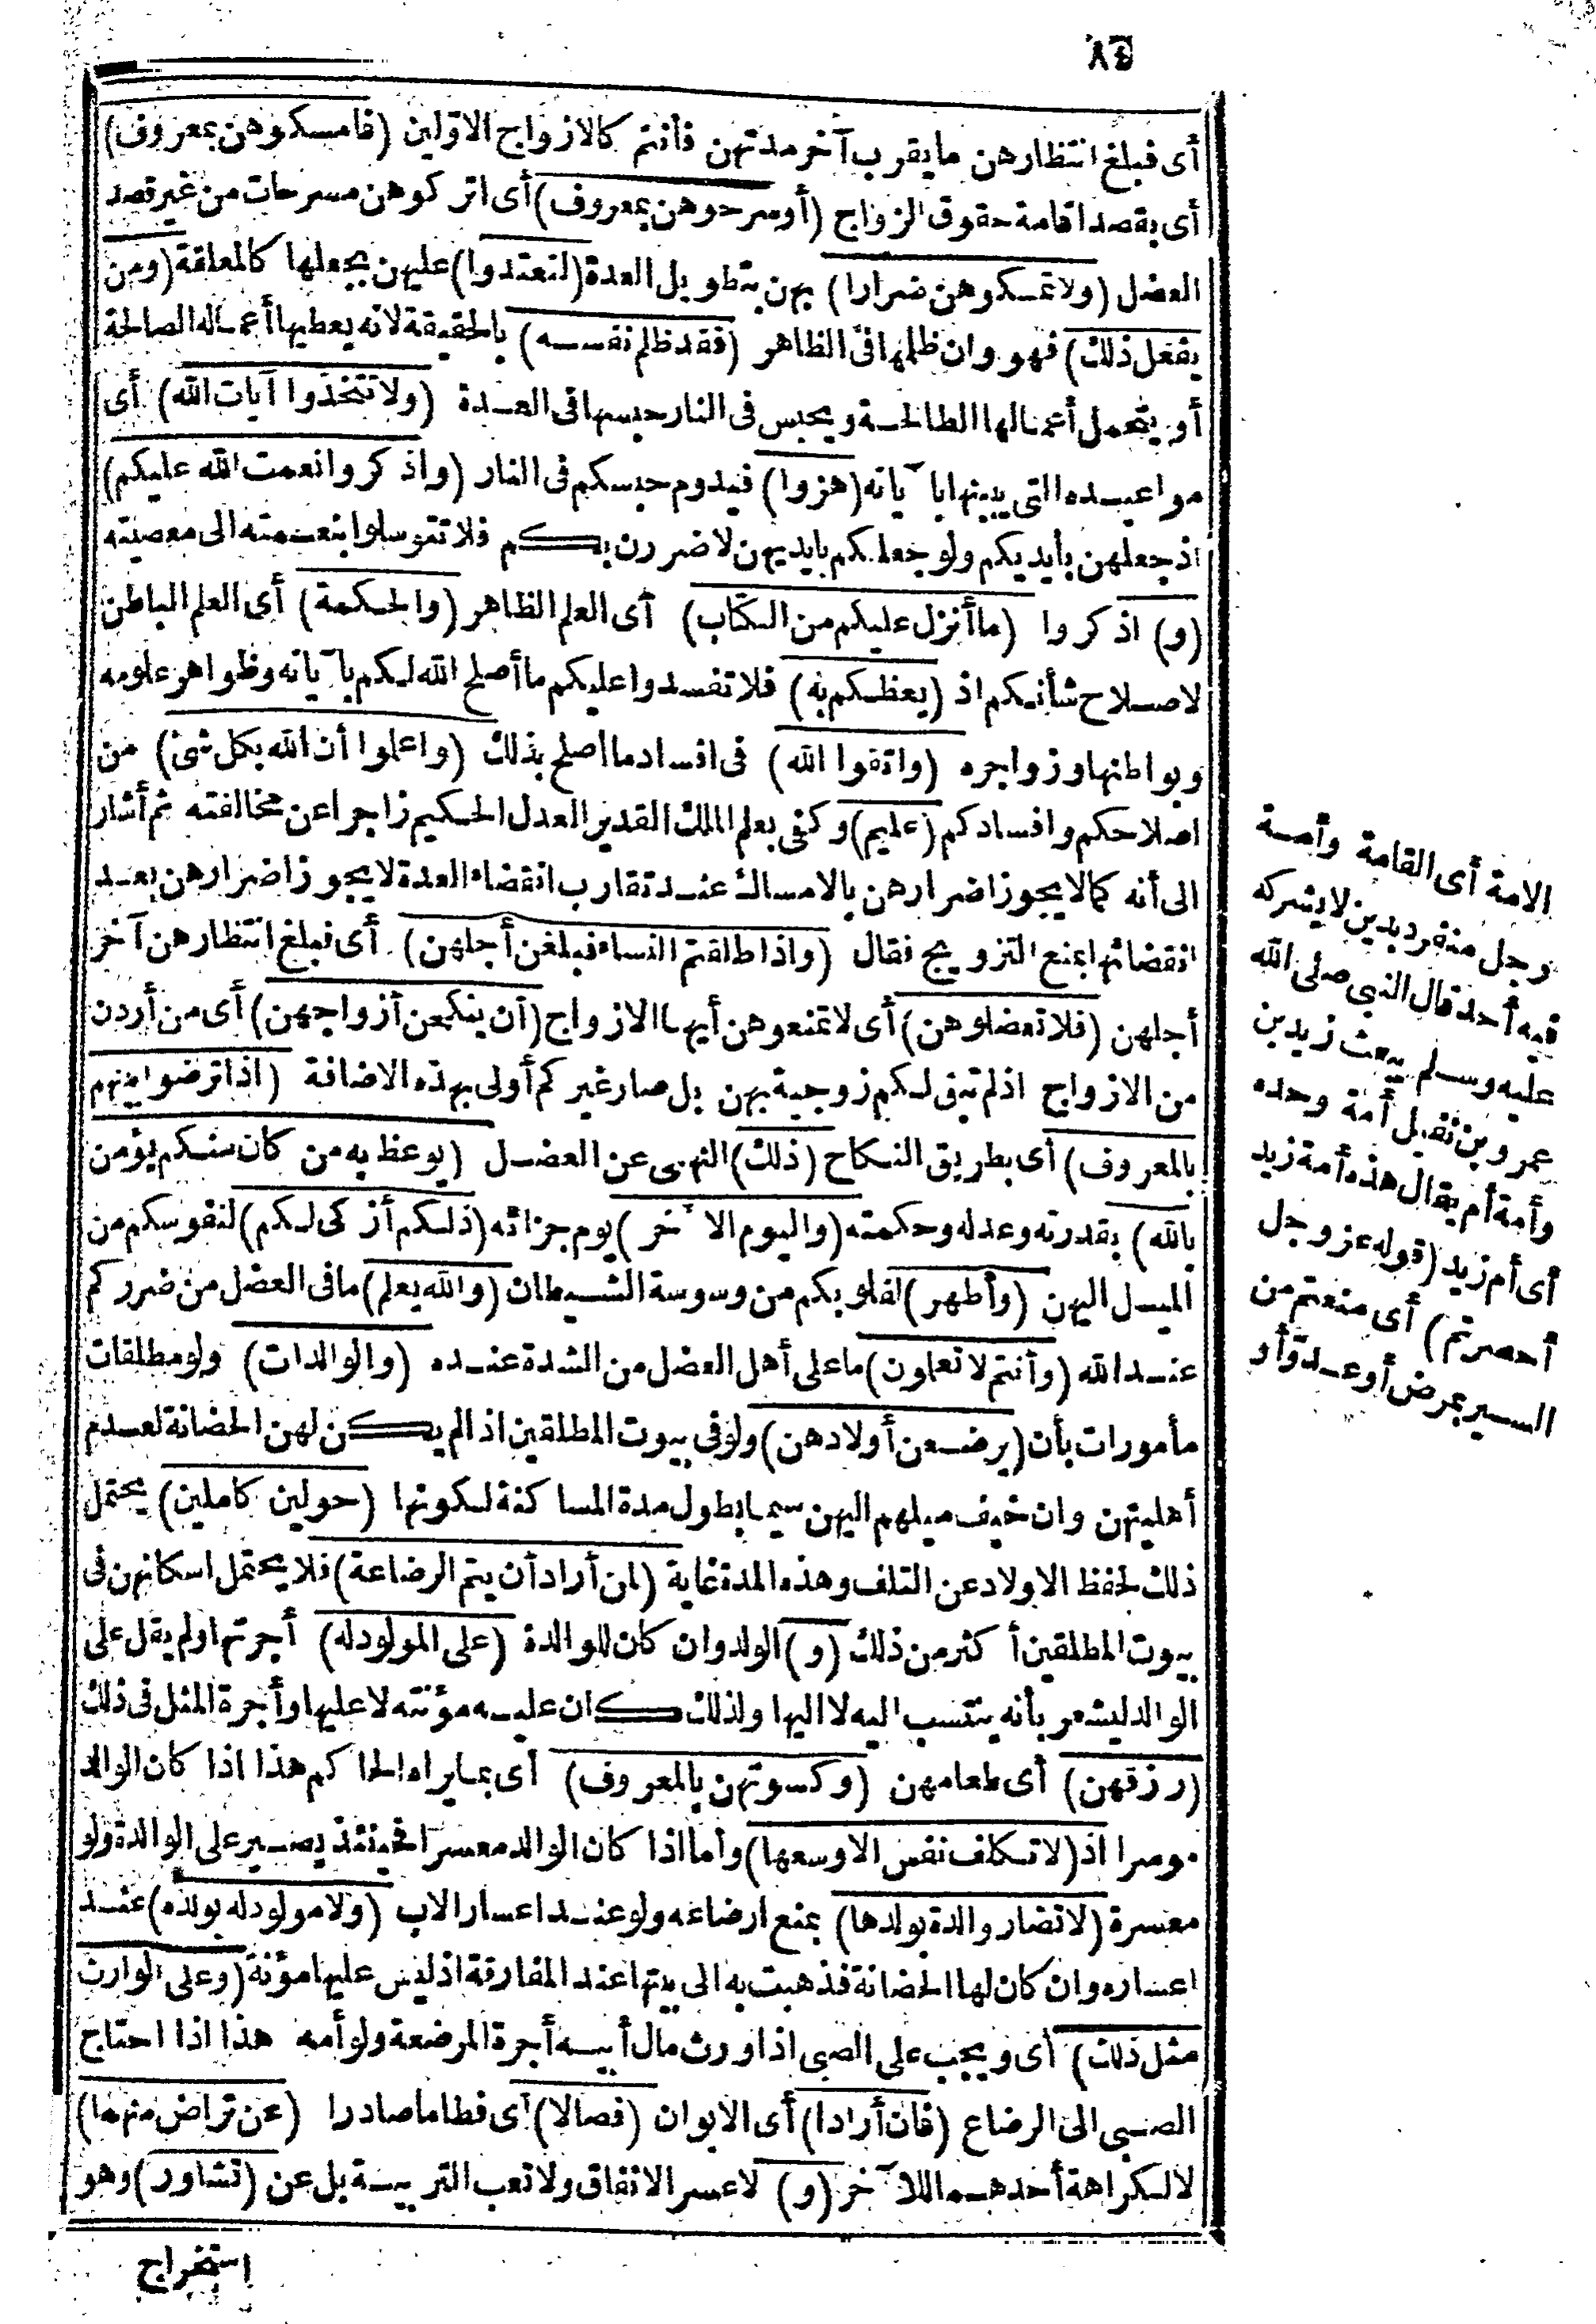 ٨٤
أى فبلغ انتظارهن ما يقرب آخر مدتهن فأنتم كالازواج الاوّلين (فامسكوهن بمعروف)
أى بقصد اقامة حقوق الزواج (أو سرحوهن بمعروف) أى اتركوهن مسرحات من غير قصد
العضل (ولا تمسكوهن ضرارا) بهن بتطويل العدة (لتعتدوا) عليهن بجعلها كالمعلقة (ومن
يفعل ذلك) فهو وان ظلمها فى الظاهر (فقد ظلم نفسه) بالحقيقة لانه يعطيها أعماله الصالحة
أو يتحمل أعمالها الطالحة ويحبس فى النار حبسها فى العدة (ولا تتخذوا آيات الله) أى
مواعيده التى بينها بآياته (هزوا) فيدوم حبسكم فى النار (واذكروا نعمت الله عليكم)
اذ جعلهن بأيديكم ولو جعلكم بايديهن لاضررن بكم فلا تتوسلوا بنعمته الى معصيته
(و) اذكروا (ما أنزل عليكم من الكتاب) أى العلم الظاهر (والحكمة) أى العلم الباطن
لاصلاح شأنكم اذ (يعظكم به) فلا تفسدوا عليكم ما أصلح الله لكم بآياته وظواهر علومه
وبواطنها وزواجره (واتقوا الله) فى افساد ما اصلح بذلك (واعلموا أن الله بكل شئ) من
اصلاحكم وافسادكم (عليم) وكفى بعلم الملك القدير العدل الحكيم زاجرا عن مخالفته ثم أشار
الى أنه كما لا يجوز اضرارهن بالامساك عند تقارب انقضاء العدة لا يجوز اضرارهن بعد
انقضائها بمنع التزويج فقال (واذا طلقتم النساء فبلغن أجلهن) أى فبلغ انتظارهن آخر
أجلهن (فلا تعضلوهن) أى لا تمنعوهن أيها الازواج (أن ينكحن أزواجهن) أى من أردن
من الازواج اذ لم تبق لكم زوجية بهن بل صار غيركم أولى بهذه الاضافة (اذا تراضوا بينهم
بالمعروف) أى بطريق النكاح (ذلك) النهى عن العضل (يوعظ به من كان منكم يؤمن
بالله) بقدرته وعدله وحكمته (واليوم الآخر) يوم جزائه (ذلكم أزكى لكم) لنفوسكم من
الميل اليهن (وأطهر) لقلوبكم من وسوسة الشيطان (والله يعلم) ما فى العضل من ضرركم
عند الله (وأنتم لا تعلمون) ما على أهل العضل من الشدة عنده (والوالدات) ولو مطلقات
مأمورات بأن (يرضعن أولادهن) ولو فى بيوت المطلقين اذ لم يكن لهن الحضانة لعدم
أهليتهن وان خيف ميلهم اليهن سيما بطول مدة المساكنة لكونها (حولين كاملين) يحتمل
ذلك لحفظ الاولاد عن التلف وهذه المدة غاية (لمن أراد أن يتم الرضاعة) فلا يحتمل اسكانهن فى
بيوت المطلقين أكثر من ذلك (و) الولد وان كان للوالدة (على المولود له) أجرتها ولم يقل على
الوالد ليشعر بأنه ينتسب اليه لا اليها ولذلك كان عليه مؤنته لا عليها وأجرة المثل فى ذلك
(رزقهن) أى طعامهن (وكسوتهن بالمعروف) أى بما يراه الحاكم هذا اذا كان الوالد
موسرا اذ (لا تكلف نفس الا وسعها) وأما اذا كان الوالد معسرا فحينئذ يصير على الوالدة ولو
معسرة (لا تضار والدة بولدها) بمنع ارضاعه ولو عند اعسار الاب (ولا مولود له بولده) عند
اعساره وان كان لها الحضانة فذهبت به الى بيتها عند المفارقة اذ ليس عليها مؤنة (وعلى الوارث
مثل ذلك) أى ويجب على الصبى اذا ورث مال أبيه أجرة المرضعة ولو أمه هذا اذا احتاج
الصبى الى الرضاع (فان أرادا) أى الابوان (فصالا) أى فطاما صادرا (عن تراض منهما)
لا لكراهة أحدهما للآخر (و) لا عسر الانفاق ولا تعب التربية بل عن (تشاور) وهو
استخراج
الامة أى القامة وأمة
رجل منفرد بدين لا يشركه
فيه أحد قال النبى صلى الله
عليه وسلم يبعث زيد بن
عمرو بن نفيل أمة وحده
وأمة أم يقال هذه أمة زيد
أى أم زيد (قوله عز وجل
أحصرتم) أى منعتم من
السير بمرض أو عدوّ أو